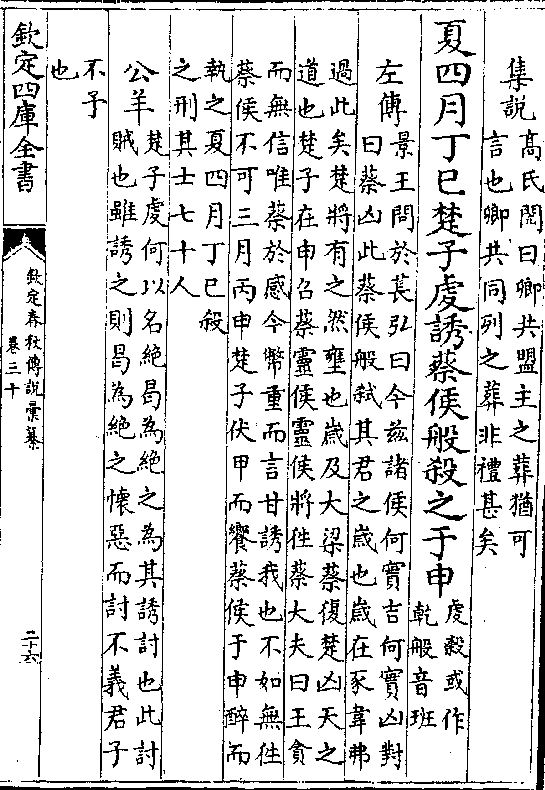 集說
高氏閌曰卿共盟主之葬猶可
言也卿共同列之葬非禮甚矣
夏四月丁巳楚子虔誘蔡侯般殺之于申
虔穀或作
乾般音班
左傳
景王問於萇弘曰今兹諸侯何實吉何實凶對
曰蔡凶此蔡侯般弑其君之歲也歲在豕韋弗
過此矣楚將有之然壅也歲及大梁蔡復楚凶天之
道也楚子在申召蔡靈侯靈侯將往蔡大夫曰王貪
而無信唯蔡於感今幣重而言甘誘我也不如無往
蔡侯不可三月丙申楚子伏甲而饗蔡侯于申醉而
執之夏四月丁巳殺
之刑其士七十人
公羊
楚子虔何以名絶曷為絶之為其誘討也此討
賊也雖誘之則曷為絶之懷惡而討不義君子
不予
也
欽定四庫全書
欽定春秋傳說彙纂
卷三十
二十六